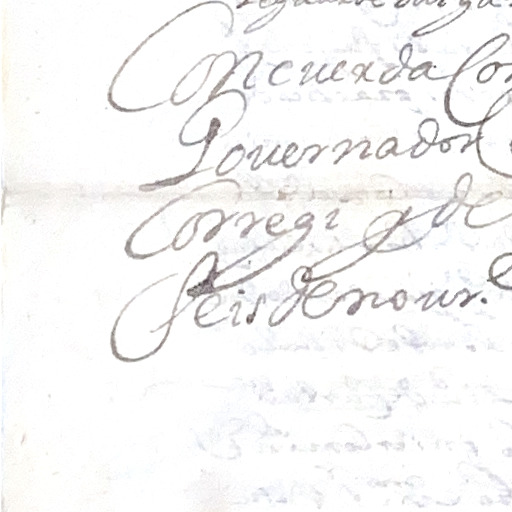 Concuerda Con
Gouernador
Corregi y de
Seis de nour.